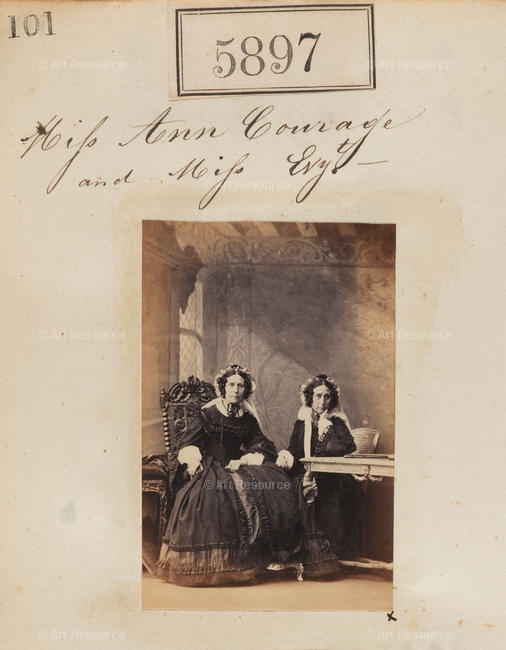 101
5897
Miss Ann Courage
and Miss
© Art Resource
© Art Resource
© Art Resource
© Art Resource
© Art Resource
© Art Resource
© Art Resource
© Art Resource
© Art Resource
© Art Resource
x